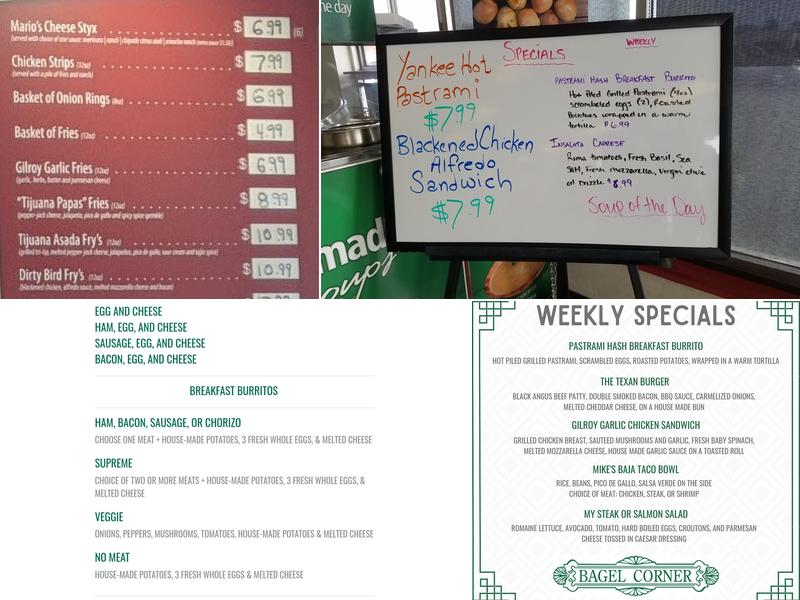 Mario's Cheese Styx $ 6.99 (6)
Chicken Strips (12oz) $ 7.99
(served with a pile of fries and ranch)
Basket of Onion Rings (8oz) $ 6.99
Basket of Fries (12oz) $ 4.99
Gilroy Garlic Fries (12oz) $ 6.99
(garlic, herbs, butter and parmesan cheese)
"Tijuana Papas" Fries $ 8.99
(pepper-jack cheese, jalapeño, pico de gallo and spicy spice sprinkle)
Tijuana Asada Fry's (12oz) $ 10.99
(grilled tri-tip, melted pepper-jack cheese, jalapeños, pico de gallo, sour cream and tajin spice)
Dirty Bird Fry's (12oz) $ 10.99
(blackened chicken, alfredo sauce, melted mozzarella cheese and bacon)
the day
made
soups
Specials
Weekly
Yankee Hot
Pastrami
$7.99
Blackened Chicken
Alfredo
Sandwich
$7.99
Pastrami Hash Breakfast Burrito
Hot Piled Grilled Pastrami (4oz)
scrambeled eggs (2), Roasted
Potatoes wrapped in a warm
tortilla $6.99
Insalata Caprese
Roma tomatoes, Fresh Basil, Sea
Salt, Fresh mozzarella, Virgin olive
oil Drizzle $8.99
Soup of the Day
EGG AND CHEESE
HAM, EGG, AND CHEESE
SAUSAGE, EGG, AND CHEESE
BACON, EGG, AND CHEESE
BREAKFAST BURRITOS
HAM, BACON, SAUSAGE, OR CHORIZO
CHOOSE ONE MEAT + HOUSE-MADE POTATOES, 3 FRESH WHOLE EGGS, & MELTED CHEESE
SUPREME
CHOICE OF TWO OR MORE MEATS + HOUSE-MADE POTATOES, 3 FRESH WHOLE EGGS, &
MELTED CHEESE
VEGGIE
ONIONS, PEPPERS, MUSHROOMS, TOMATOES, HOUSE-MADE POTATOES & MELTED CHEESE
NO MEAT
HOUSE-MADE POTATOES, 3 FRESH WHOLE EGGS & MELTED CHEESE
WEEKLY SPECIALS
PASTRAMI HASH BREAKFAST BURRITO
HOT PILED GRILLED PASTRAMI, SCRAMBLED EGGS, ROASTED POTATOES, WRAPPED IN A WARM TORTILLA
THE TEXAN BURGER
BLACK ANGUS BEEF PATTY, DOUBLE SMOKED BACON, BBQ SAUCE, CARMELIZED ONIONS,
MELTED CHEDDAR CHEESE, ON A HOUSE MADE BUN
GILROY GARLIC CHICKEN SANDWICH
GRILLED CHICKEN BREAST, SAUTEED MUSHROOMS AND GARLIC, FRESH BABY SPINACH,
MELTED MOZZARELLA CHEESE, HOUSE MADE GARLIC SAUCE ON A TOASTED ROLL
MIKE'S BAJA TACO BOWL
RICE, BEANS, PICO DE GALLO, SALSA VERDE ON THE SIDE
CHOICE OF MEAT: CHICKEN, STEAK, OR SHRIMP
MY STEAK OR SALMON SALAD
ROMAINE LETTUCE, AVOCADO, TOMATO, HARD BOILED EGGS, CROUTONS, AND PARMESAN
CHEESE TOSSED IN CAESAR DRESSING
BAGEL CORNER